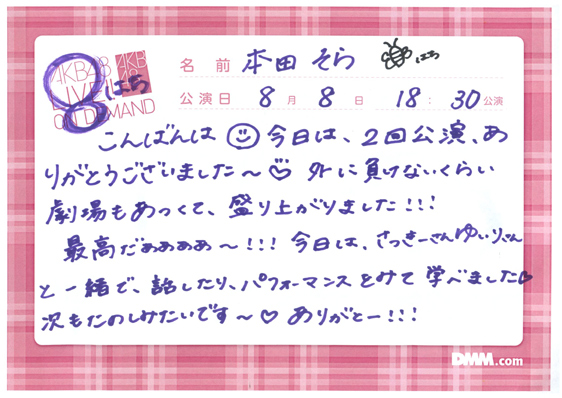 AKB48
LIVE!!
ON DEMAND
AKB
48
8
はち
名前 本田 そら
はち
公演日 8月8日 18:30公演
こんばんは 今日は、2回公演、あ
りがとうございました〜♡ 外に負けないくらい
劇場もあつくて、盛り上がりました!!!
最高だぁぁぁぁ〜!!! 今日は、さっきーさんゆいりさん
と一緒で、話したり、パフォーマンスをみて学べました♡
次もたのしみたいです〜♡ ありがとー!!!
DMM.com